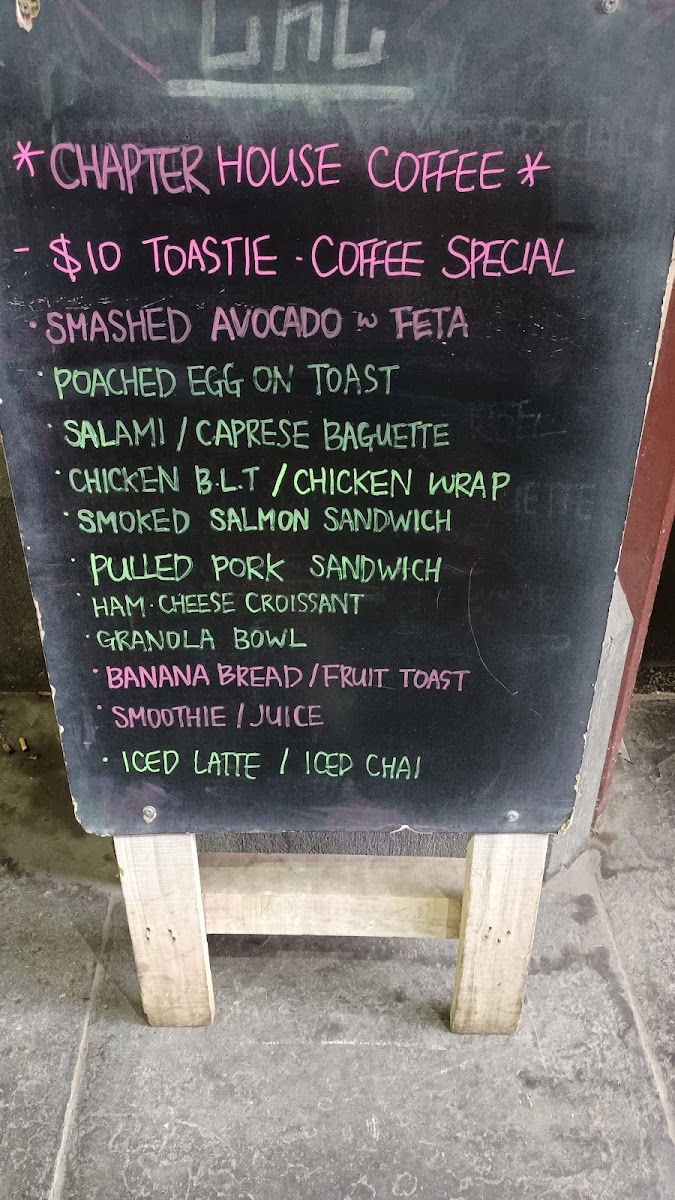 CHC
* CHAPTER HOUSE COFFEE *
- $10 TOASTIE · COFFEE SPECIAL
· SMASHED AVOCADO w FETA
· POACHED EGG ON TOAST
· SALAMI / CAPRESE BAGUETTE
· CHICKEN B.L.T / CHICKEN WRAP
· SMOKED SALMON SANDWICH
· PULLED PORK SANDWICH
· HAM · CHEESE CROISSANT
· GRANOLA BOWL
· BANANA BREAD / FRUIT TOAST
· SMOOTHIE / JUICE
· ICED LATTE / ICED CHAI